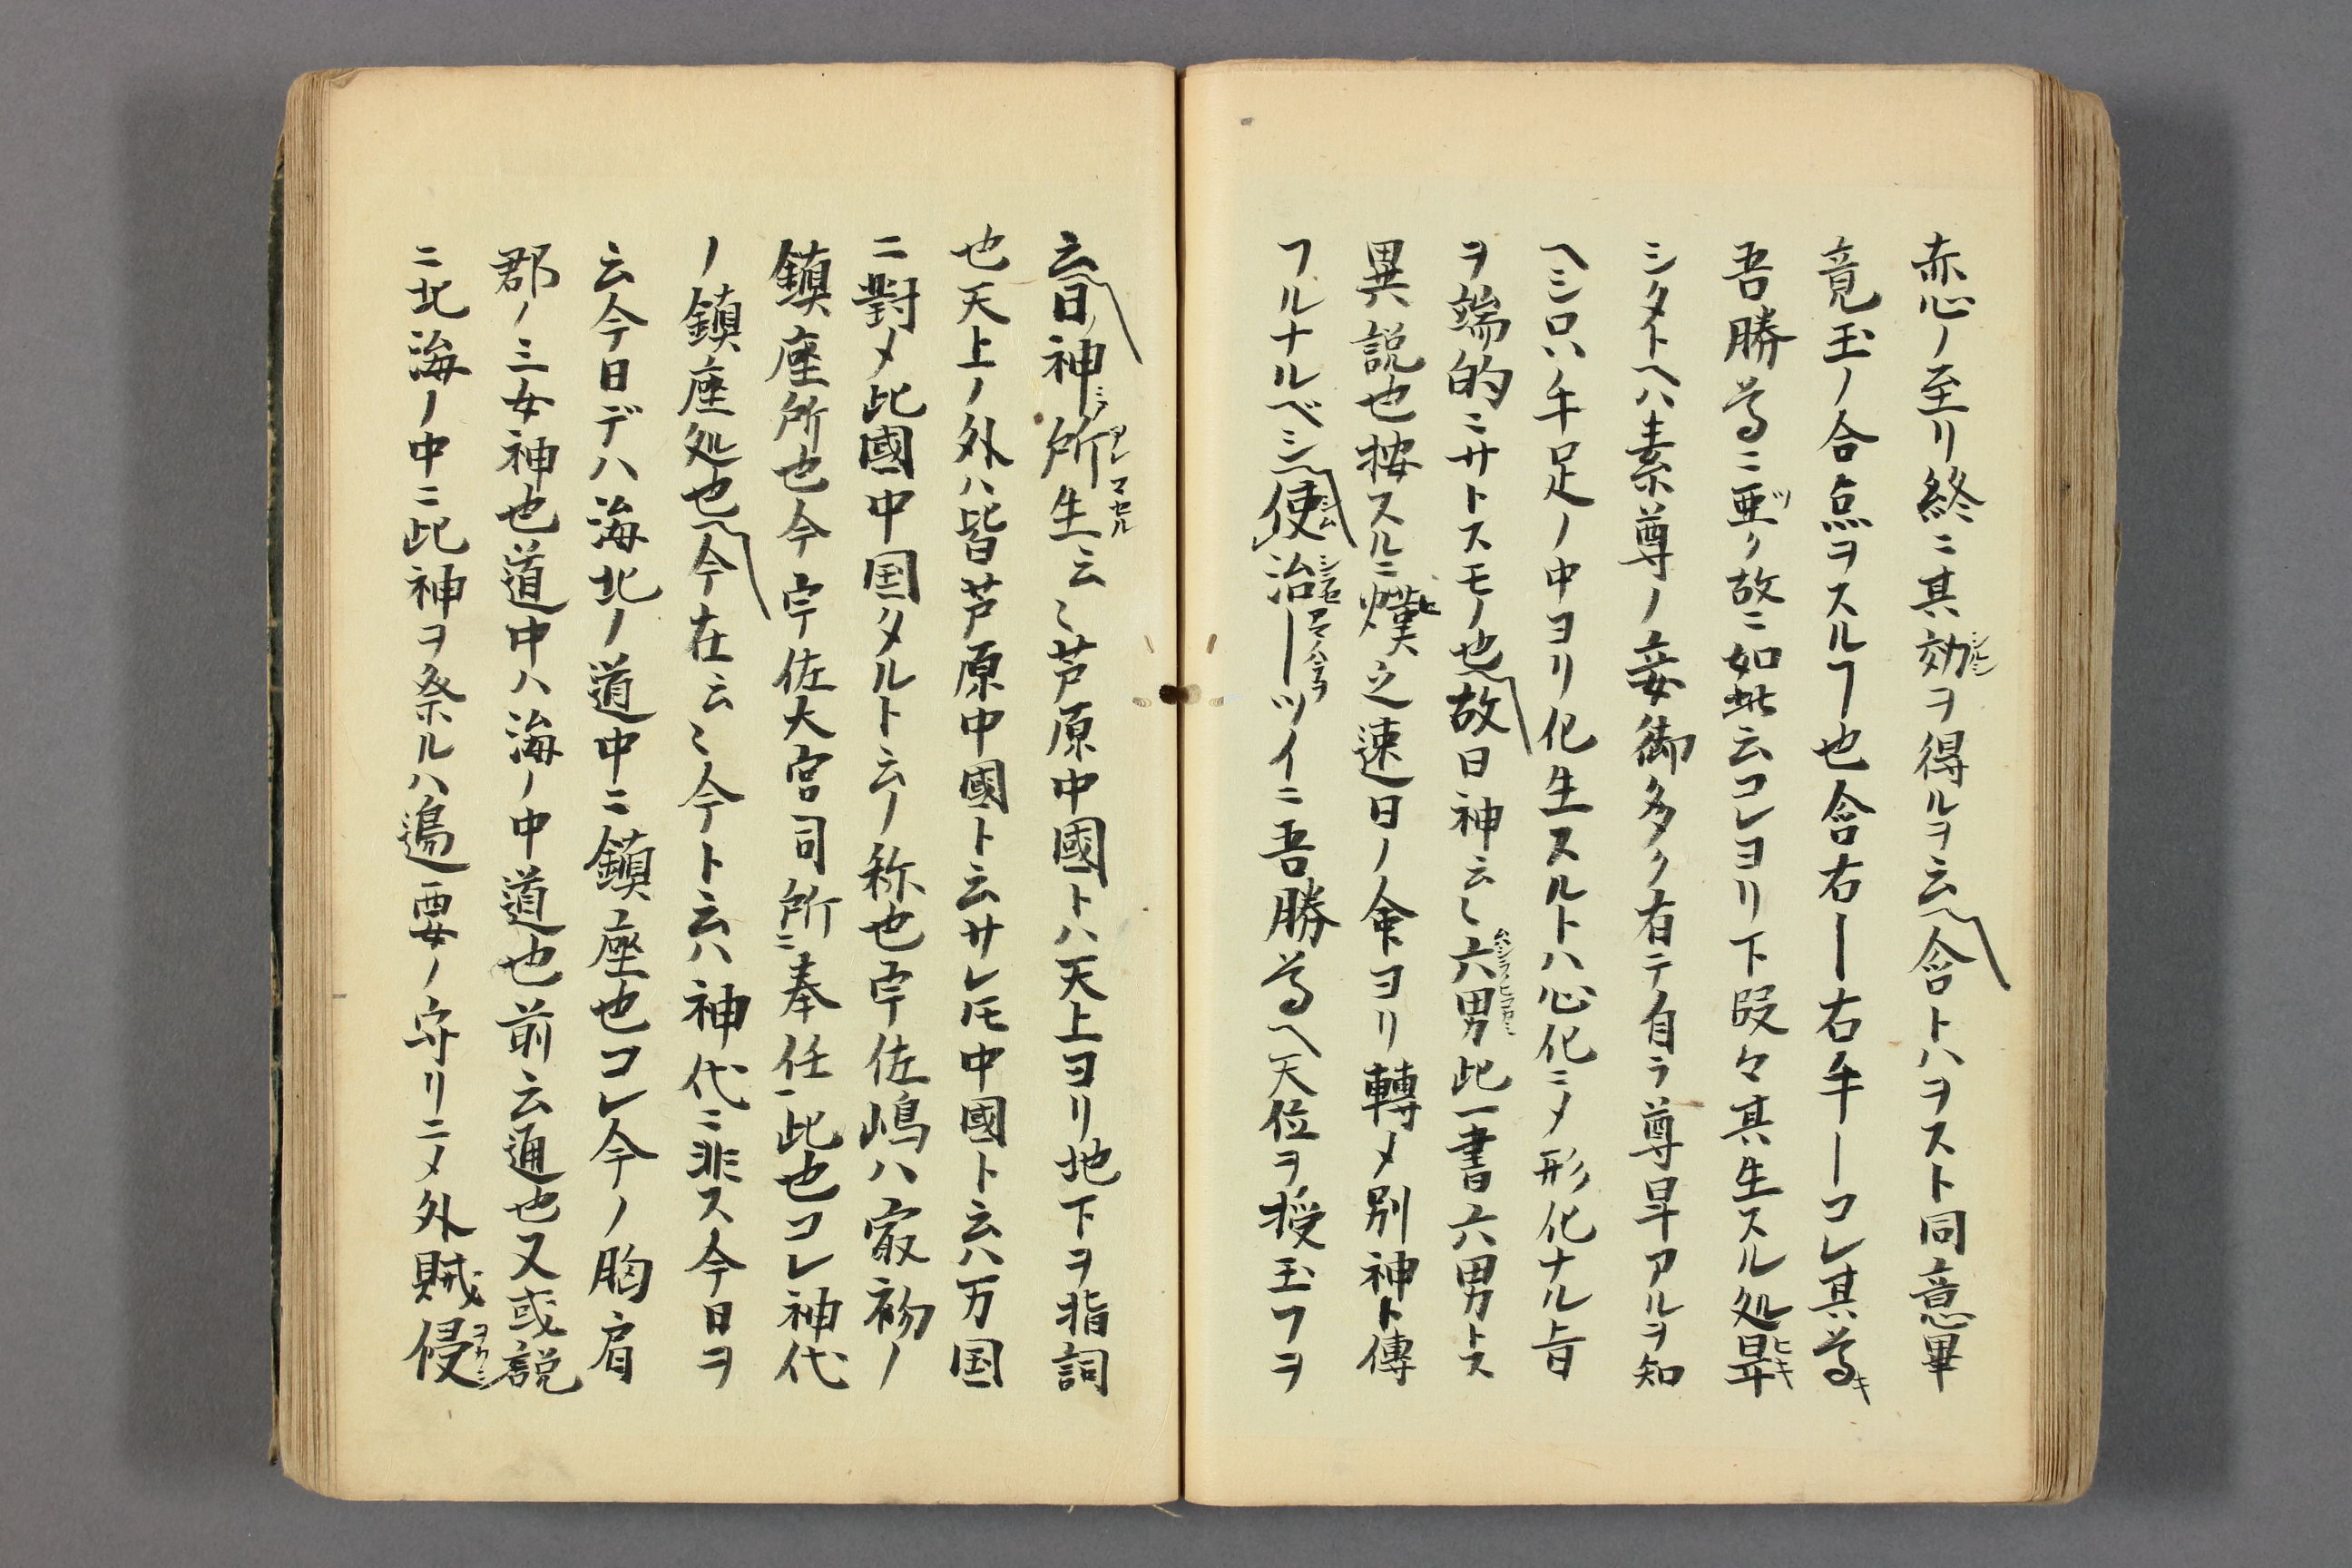 赤心ノ至リ終ニ其効ヲ得ルヲ云〽含トハヲスト同意畢
竟玉ノ合点ヲスルヿ也含右ー右手ーコレ其尊
吾勝尊ニ亜ク故ニ如此云コレヨリ下段々其生スル処畢
シタトヘハ素尊ノ妾御多ク有テ自ラ尊卑アルヲ知
ヘシ只ハ手足ノ中ヨリ化生スルトハ心化ニメ形化ナル旨
ヲ端的ニサトスモノ也〽故日神云〻六男此一書六男トス
異説也按スルニ熯之速日ノ命ヨリ轉メ別神ト傳
フルナルベシ〽使治ーツイニ吾勝尊ヘ天位ヲ授玉フヲ
云〽日神所生云〻芦原中國トハ天上ヨリ地下ヲ指詞
也天上ノ外ハ皆芦原中國ト云サレ𪜈中國ト云ハ万国
ニ對メ此國中国タルト云ノ称也宇佐嶋ハ最初ノ
鎮座所也今宇佐大宮司所ニ奉任一此也コレ神代
ノ鎮座処也〽今在云〻今ト云ハ神代ニ非ス今日ヲ
云今日デハ海北ノ道中ニ鎮座也コレ今ノ胸肩
郡ノ三女神也道中ハ海ノ中道也前云通也又或説
ニ北海ノ中ニ此神ヲ祭ルハ邊要ノ守リニメ外賊侵